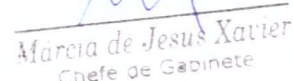 Márcia de Jesus Xavier
Chefe de Gabinete